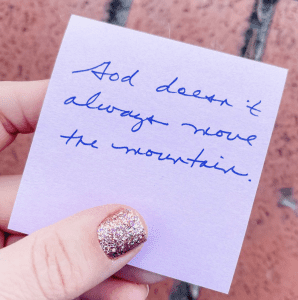 God doesn't
always move
the mountain.